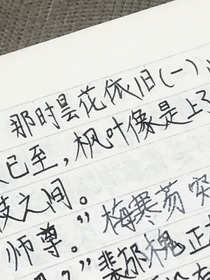 那时昙花依旧(一)
已至，枫叶像是上了
之间。
师尊。”梅寒芴突
？”裴郁槐正